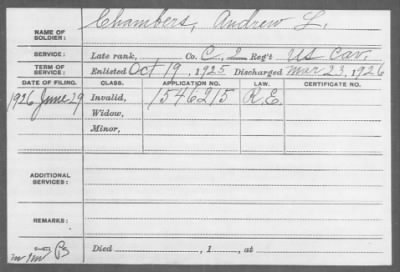 NAME OF SOLDIER: Chambers, Andrew L.
SERVICE: Late rank, Co. C, 2 Reg't US Cav.
TERM OF SERVICE: Enlisted Oct 19, 1925 Discharged Mar 23, 1926
DATE OF FILING. CLASS. APPLICATION NO. LAW. CERTIFICATE NO.
1926 June 29 Invalid, 1546215 R.E.
Widow,
Minor,
ADDITIONAL SERVICES:
REMARKS:
Died , 1 , at